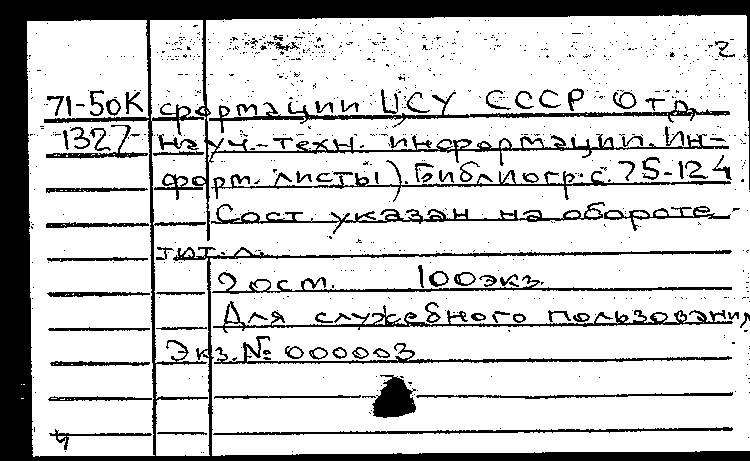 2
71-50К сформации ЦСУ СССР. Отд.
1327 науч.-техн. информации. Ин-
форм. листы). Библиогр: с. 75-124.
Сост. указан на обороте
тит. л.
2 ост. 100 экз.
Для служебного пользования
Экз. № 000003